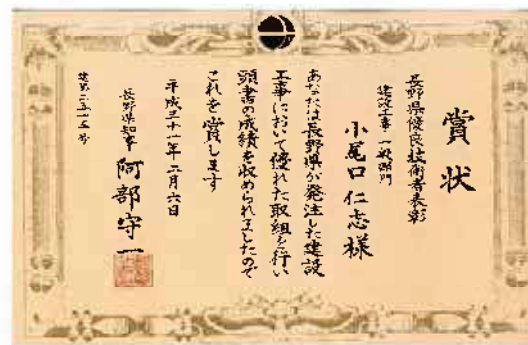 賞状
長野県優良技術者表彰
建設工事 一般部門
小尾口 仁志 様
あなたは長野県が発注した建設
工事において優れた取組を行い
頭書の成績を収められましたので
これを賞します
平成三十一年二月六日
長野県知事 阿部守一